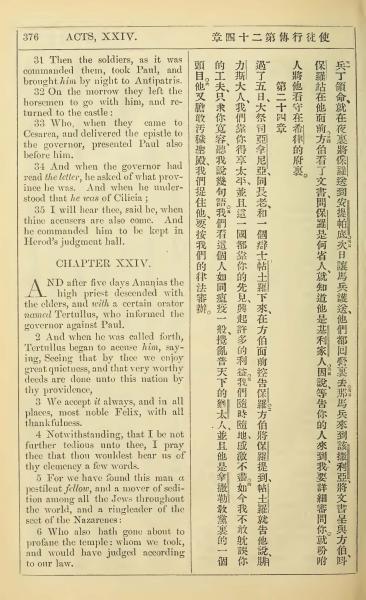 376 ACTS, XXIV. 使徒行傳第二十四章
31 Then the soldiers, as it was
commanded them, took Paul, and
brought him by night to Antipatris.
32 On the morrow they left the
horsemen to go with him, and re-
turned to the castle:
33 Who, when they came to
Cesarea, and delivered the epistle to
the governor, presented Paul also
before him.
34 And when the governor had
read the letter, he asked of what prov-
ince he was. And when he under-
stood that he was of Cilicia;
35 I will hear thee, said he, when
thine accusers are also come. And
he commanded him to be kept in
Herod's judgment hall.
CHAPTER XXIV.
AND after five days Ananias the
high priest descended with
the elders, and with a certain orator
named Tertullus, who informed the
governor against Paul.
2 And when he was called forth,
Tertullus began to accuse him, say-
ing, Seeing that by thee we enjoy
great quietness, and that very worthy
deeds are done unto this nation by
thy providence,
3 We accept it always, and in all
places, most noble Felix, with all
thankfulness.
4 Notwithstanding, that I be not
further tedious unto thee, I pray
thee that thou wouldest hear us of
thy clemency a few words.
5 For we have found this man a
pestilent fellow, and a mover of sedi-
tion among all the Jews throughout
the world, and a ringleader of the
sect of the Nazarenes:
6 Who also hath gone about to
profane the temple: whom we took,
and would have judged according
to our law.
兵丁領命就在夜裏將保羅送到安提帕底次日讓馬兵護送他們都回營裏去那馬兵來到該撒利亞將文書呈與方伯叫
保羅站在他面前方伯看了文書問保羅是何省人就知道他是基利家人因說等告你的人來到我要詳細審問你就吩咐
人將他看守在希律的府裏
第二十四章
過了五日大祭司亞拿尼亞同長老和一個辯士帖土羅下來在方伯面前控告保羅方伯將保羅提到帖土羅就告他說腓
力斯大人我們靠你得享太平並且這一國都靠你的先見興起許多的利益我們隨時隨地感激不盡如今我不敢躭誤你
的工夫只求你寬容聽我說幾句話我們看這個人如同瘟疫一般攪亂普天下的猶太人並且他是拿撒勒敎黨裏的一個
頭目他又膽敢污穢聖殿我們捉住他要按我們的律法審辦